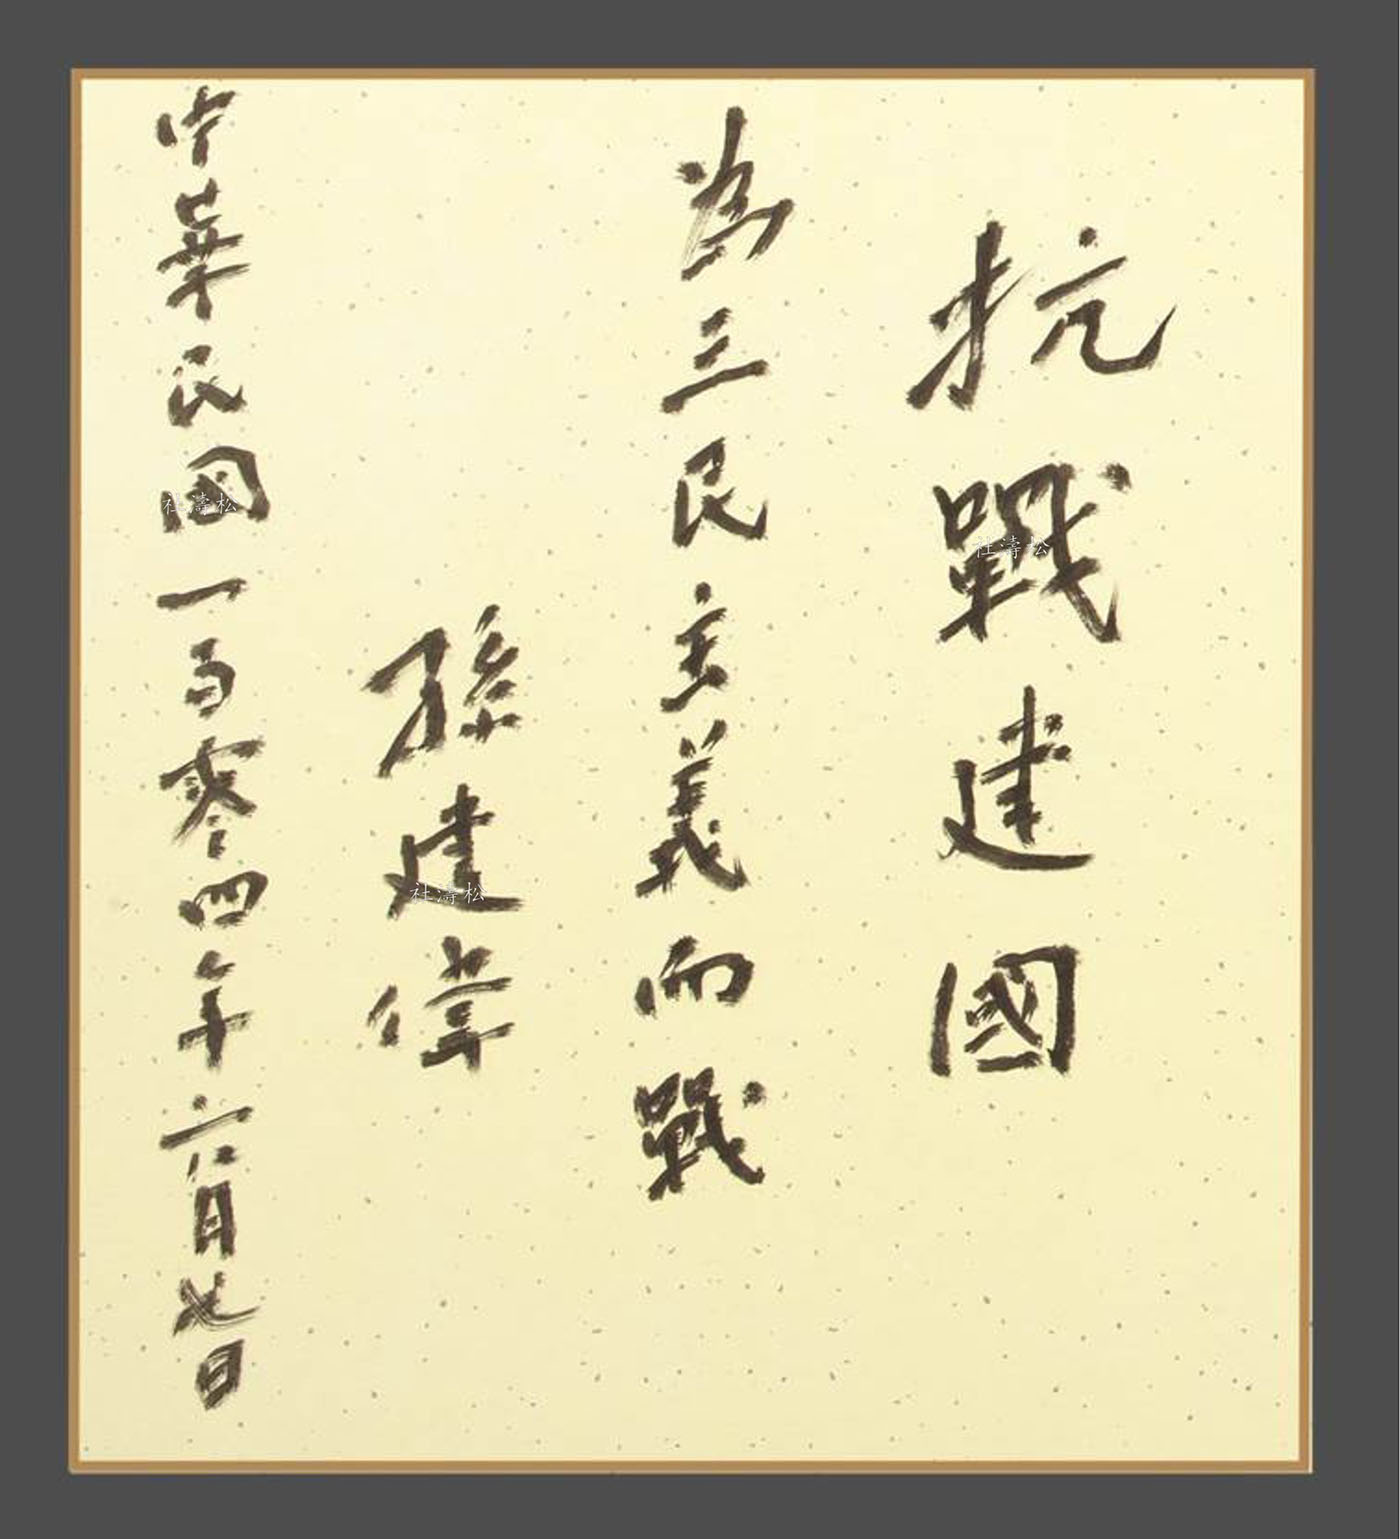 抗戰建國
為三民主義而戰
孫建偉
中華民國一百零四年六月七日
社濤松
社濤松
社濤松